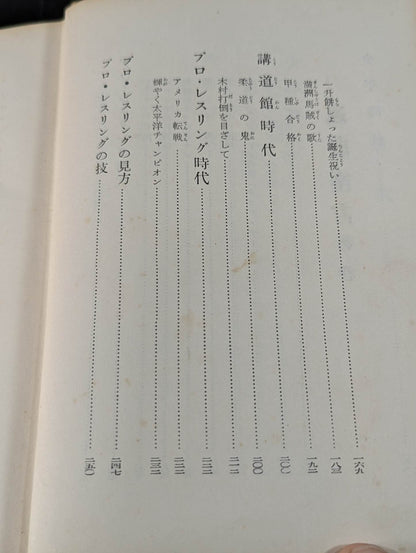 一升餅しょった誕生祝い……一六九
満洲馬賊の歌……一八三
甲種合格……一九二
講道館時代……二〇〇
柔道の鬼……二〇〇
木村打倒を目ざして……二一二
プロ・レスリング時代……二二二
アメリカ転戦……二二二
輝やく太平洋チャンピオン……二三二
プロ・レスリングの見方……二四七
プロ・レスリングの技……二五〇